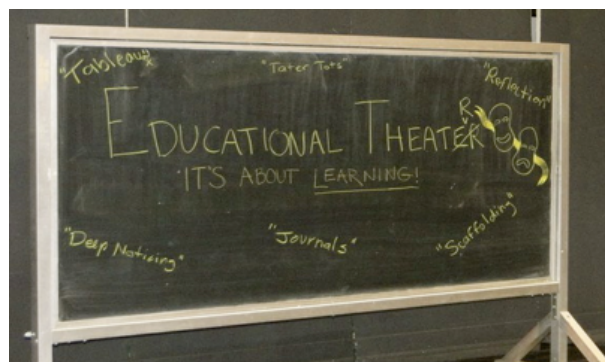 "Tableaux"
"Tater Tots"
"Reflection"
R
EDUCATIONAL THEATER
IT'S ABOUT LEARNING!
"Deep Noticing"
"Journals"
"Scaffolding"